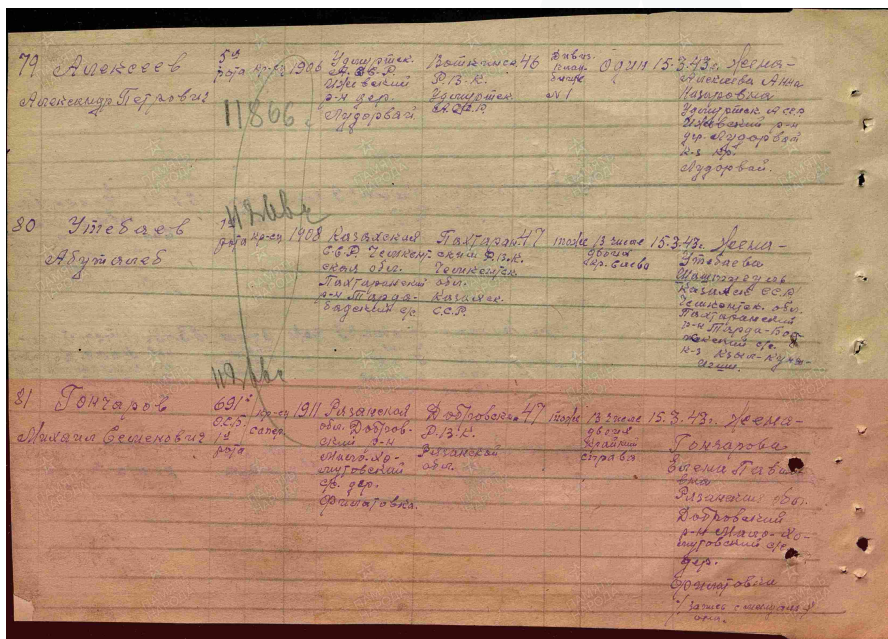 79 Алексеев
Александр Петрович
5я
рота кр-ец 1906
Удмуртск.
А.С.С.Р.
Ижевский
р-н дер.
Лудорвай
Воткинск. 46
Р.В.К.
Удмуртск.
А.С.С.Р.
Дивиз.
клад-
бище
№1
один 15.3.43г. Жена-
Алексеева Анна
Назаровна
Удмуртск. АССР
Ижевский р-н
дер. Лудорвай
к-з кр.
Лудорвай.
11866
80 Утебаев
Абуталеб
рота кр-ец 1908
Казахская
С.С.Р. Чемкент-
ская обл.
Пахтаранский
р-н Тарда-
Пахтаран. 47
ский Р.В.К.
Чемкентск.
обл.
Казахск.
С.С.Р.
тоже
В числе
двоих
15.3.43г. Жена-
Утебаева
Казахск. ССР
Чемкентск. обл.
Пахтаранский
р-н
81 Гончаров
Михаил Семенович
691й
О.С.Б.
1я
рота
кр-ец
сапер.
1911
Рязанская
обл. Добров-
ский р-н
Мало-Хо-
мутовский
с/с. дер.
Филатовка.
Добровск. 47
Р.В.К.
Рязанской
обл.
тоже
В числе
двоих
крайний
справа
15.3.43г. Жена-
Гончарова
Елена Пав
вна
Рязанская обл.
Добровский
р-н Мало-Хо-
мутовский с/с
дер.